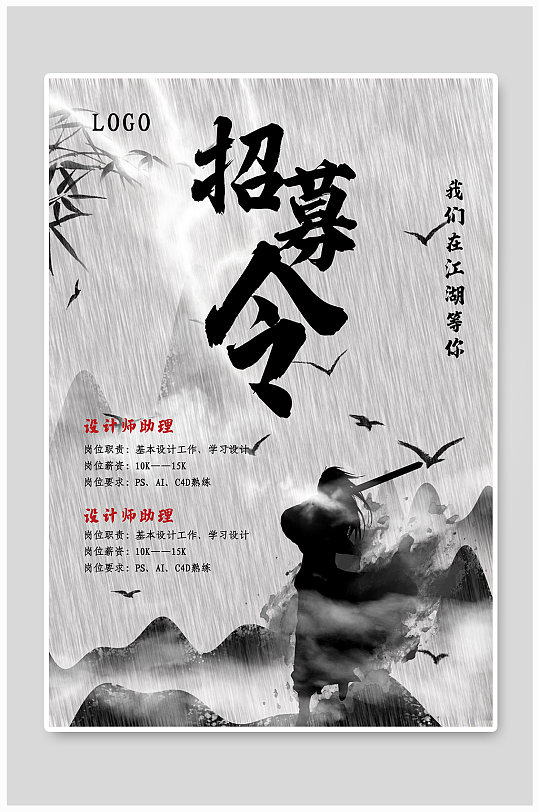 LOGO
招募令
我们在江湖等你
设计师助理
岗位职责：基本设计工作、学习设计
岗位薪资：10K——15K
岗位要求：PS、AI、C4D熟练
设计师助理
岗位职责：基本设计工作、学习设计
岗位薪资：10K——15K
岗位要求：PS、AI、C4D熟练